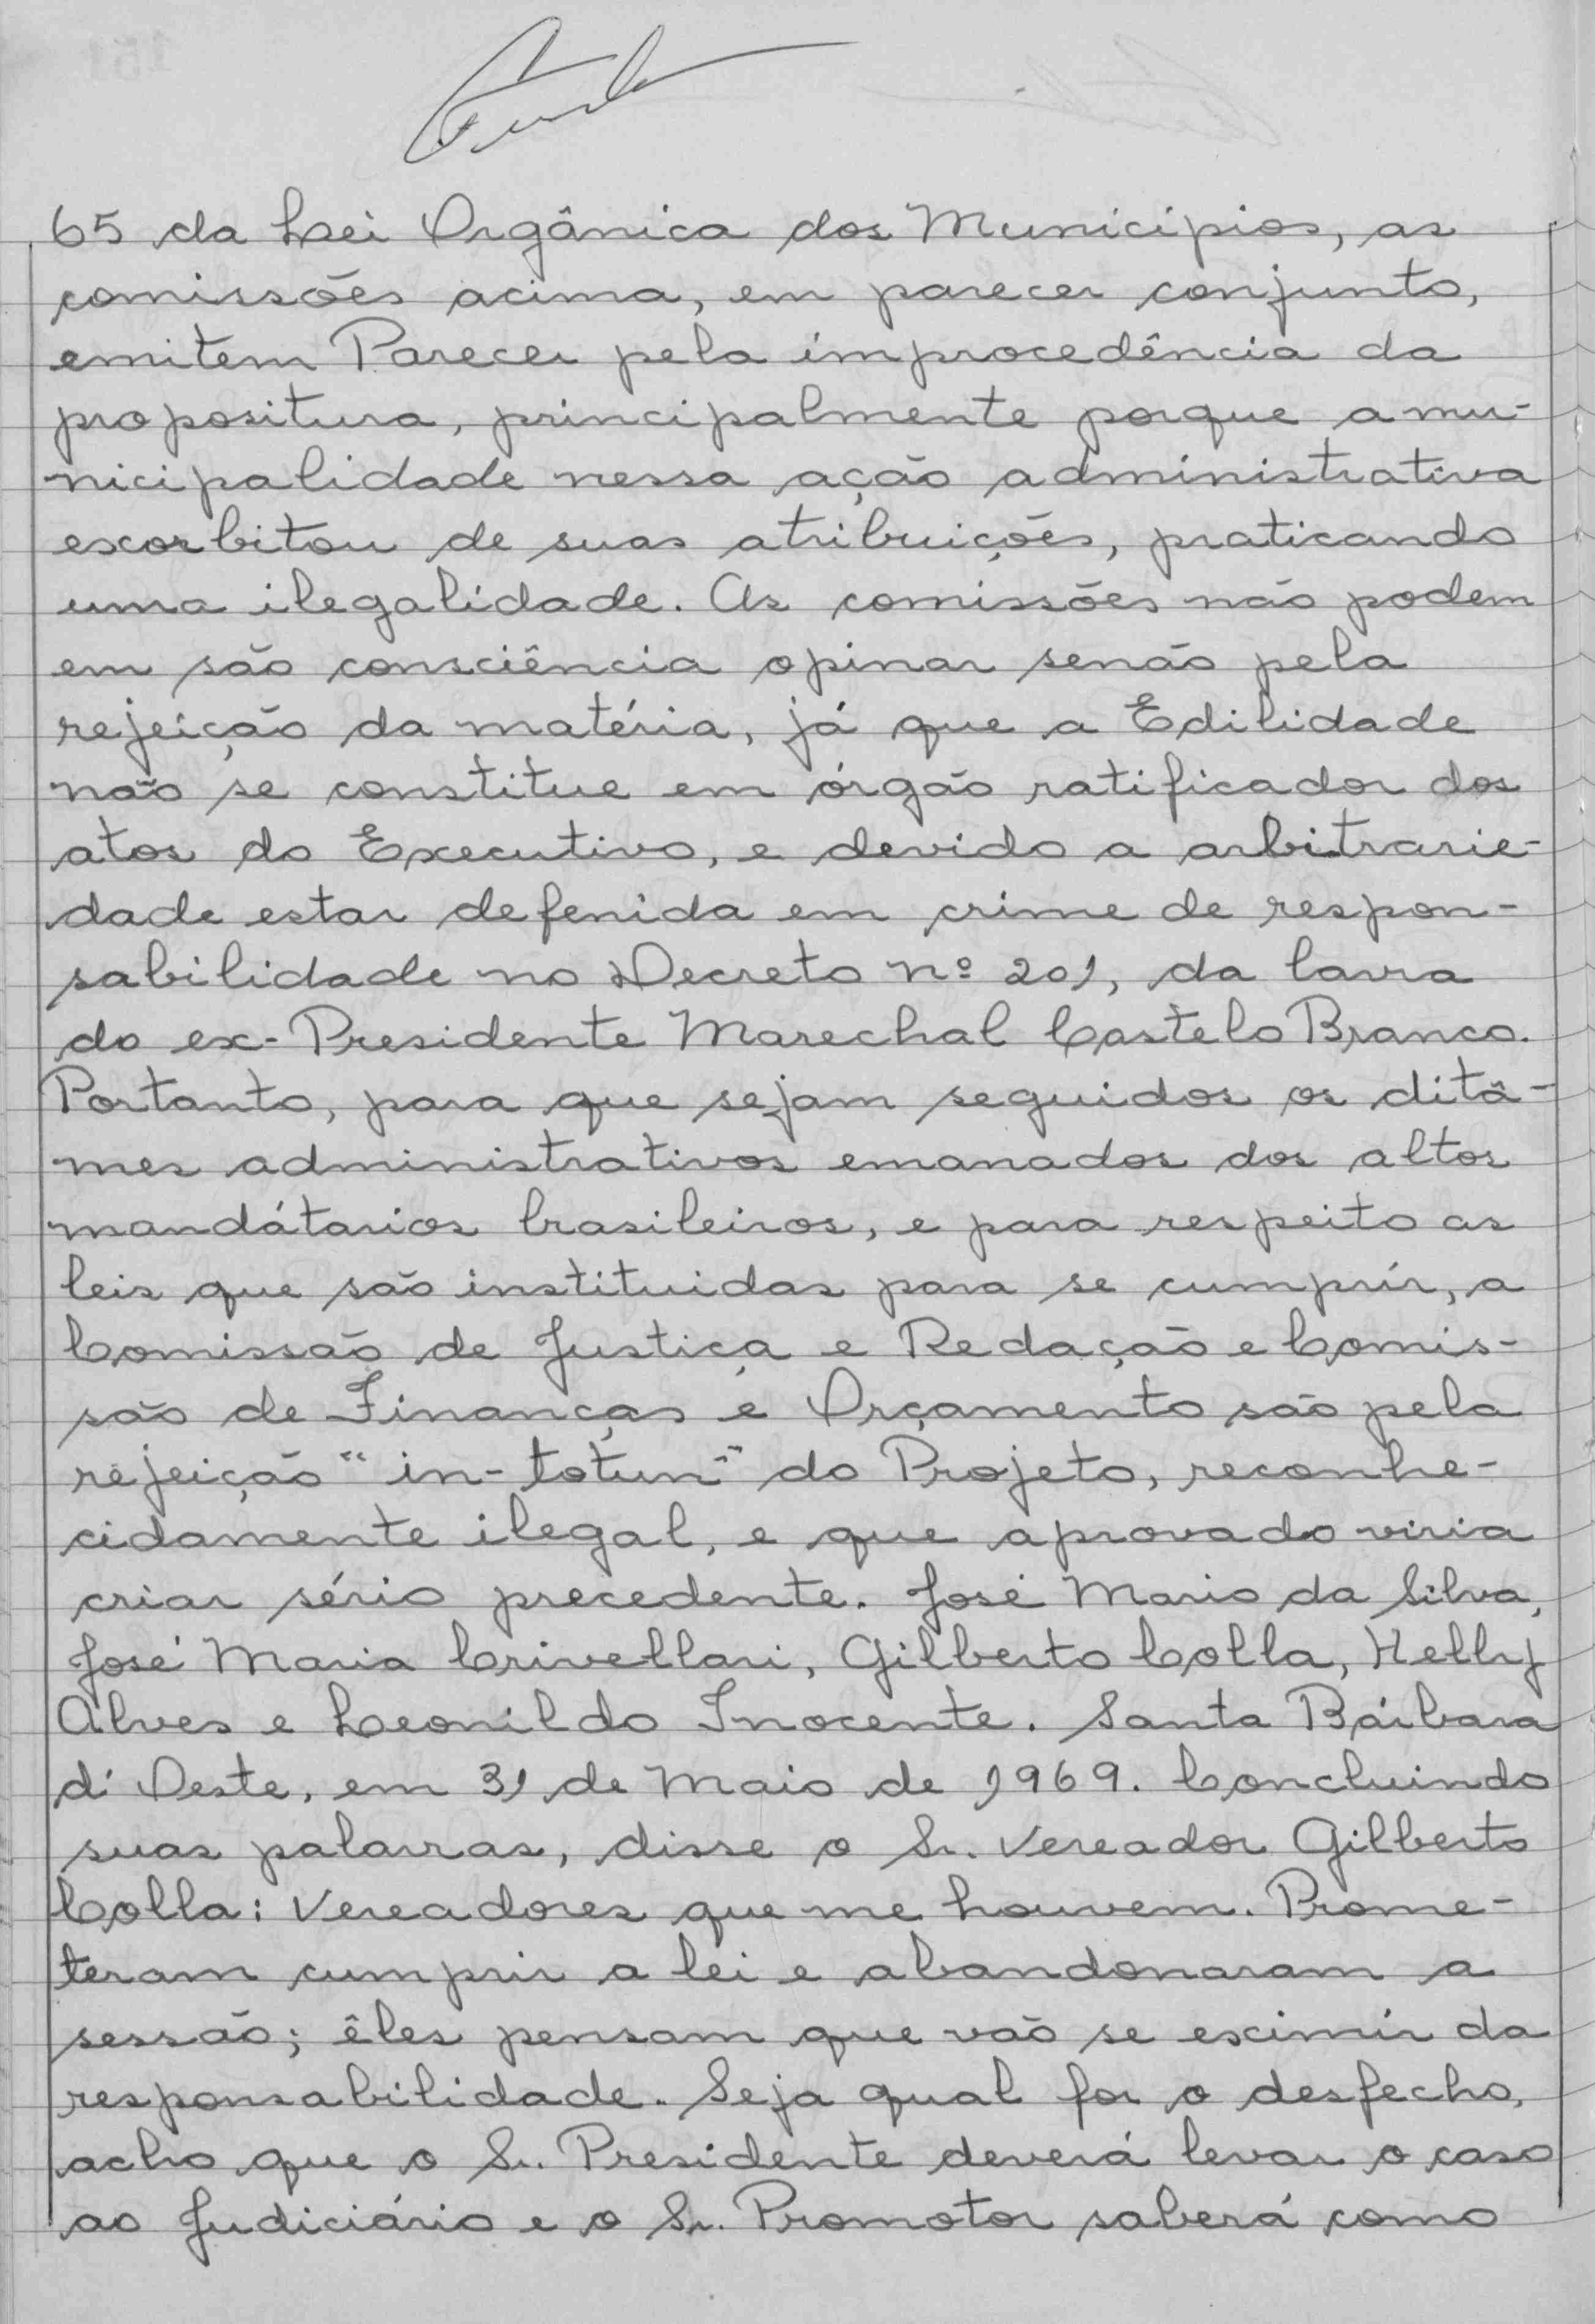 65 da Lei Orgânica dos Municipios, as
comissões acima, em parecer conjunto,
emitem Parecer pela improcedência da
propositura, principalmente porque a mu-
nicipalidade nessa ação administrativa
exorbitou de suas atribuições, praticando
uma ilegalidade. As comissões não podem
em são consciência opinar senão pela
rejeição da matéria, já que a Edilidade
não se constitue em órgão ratificador dos
atos do Executivo, e devido a arbitrarie-
dade estar defenida em crime de respon-
sabilidade no Decreto nº 201, da lavra
do ex-Presidente Marechal Castelo Branco.
Portanto, para que sejam seguidos os ditâ-
mes administrativos emanados dos altos
mandátarios brasileiros, e para respeito as
leis que são instituidas para se cumprir, a
Comissão de Justiça e Redação e Comis-
são de Finanças e Orçamento são pela
rejeição "in-totun" do Projeto, reconhe-
cidamente ilegal, e que aprovado viria
criar sério precedente. José Mario da Silva,
José Maria Crivellari, Gilberto Colla, Helly
Alves e Leonildo Inocente. Santa Bárbara
d'Oeste, em 31 de Maio de 1969. Concluindo
suas palavras, disse o Sr. Vereador Gilberto
Colla: Vereadores que me houvem. Prome-
teram cumprir a lei e abandonaram a
sessão; êles pensam que vão se eximir da
responsabilidade. Seja qual for o desfecho,
acho que o Sr. Presidente deverá levar o caso
ao Judiciário e o Sr. Promotor saberá como